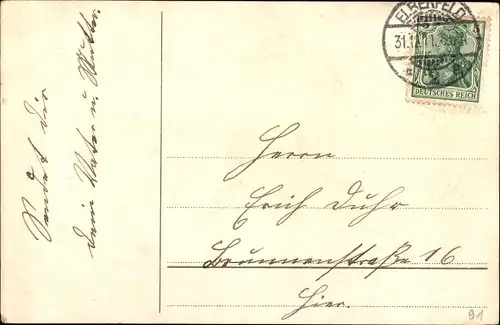 Sendet Dir
dein Vater u. Mutter.
ELBERFELD
31.12.11.
DEUTSCHES REICH
Herrn
Erich Duhr
Brunnenstraße 16
Hier.
91